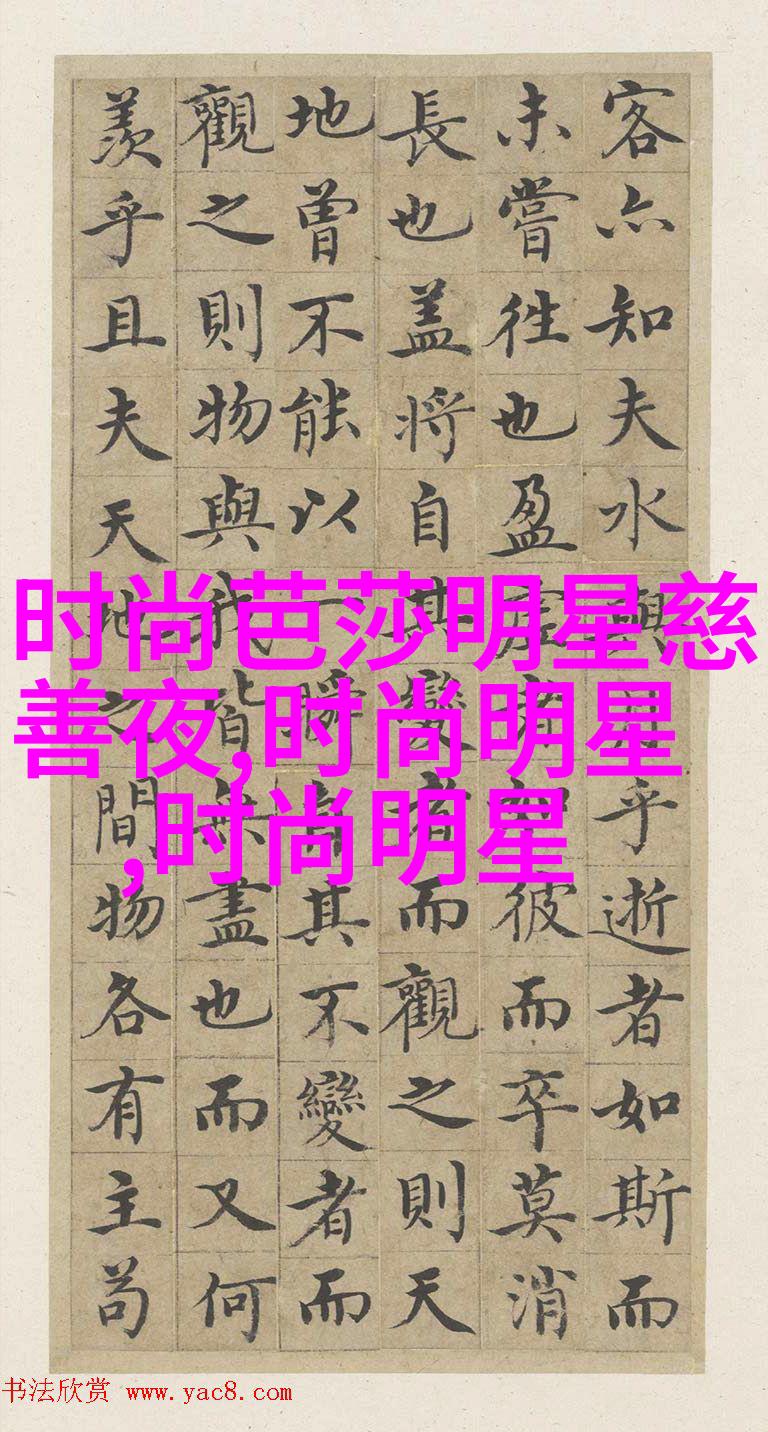 客亦知夫水與乎逝者如斯而
未嘗往也盈虚者如彼而卒莫消
長也盖將自其變者而觀之則天
地曾不能以一瞬自其不變者而
觀之則物與我皆無盡也而又何
羨乎且夫天地之間物各有主苟
时尚芭莎明星慈
善夜,时尚明星
,时尚明星
书法欣赏 www.yac8.com